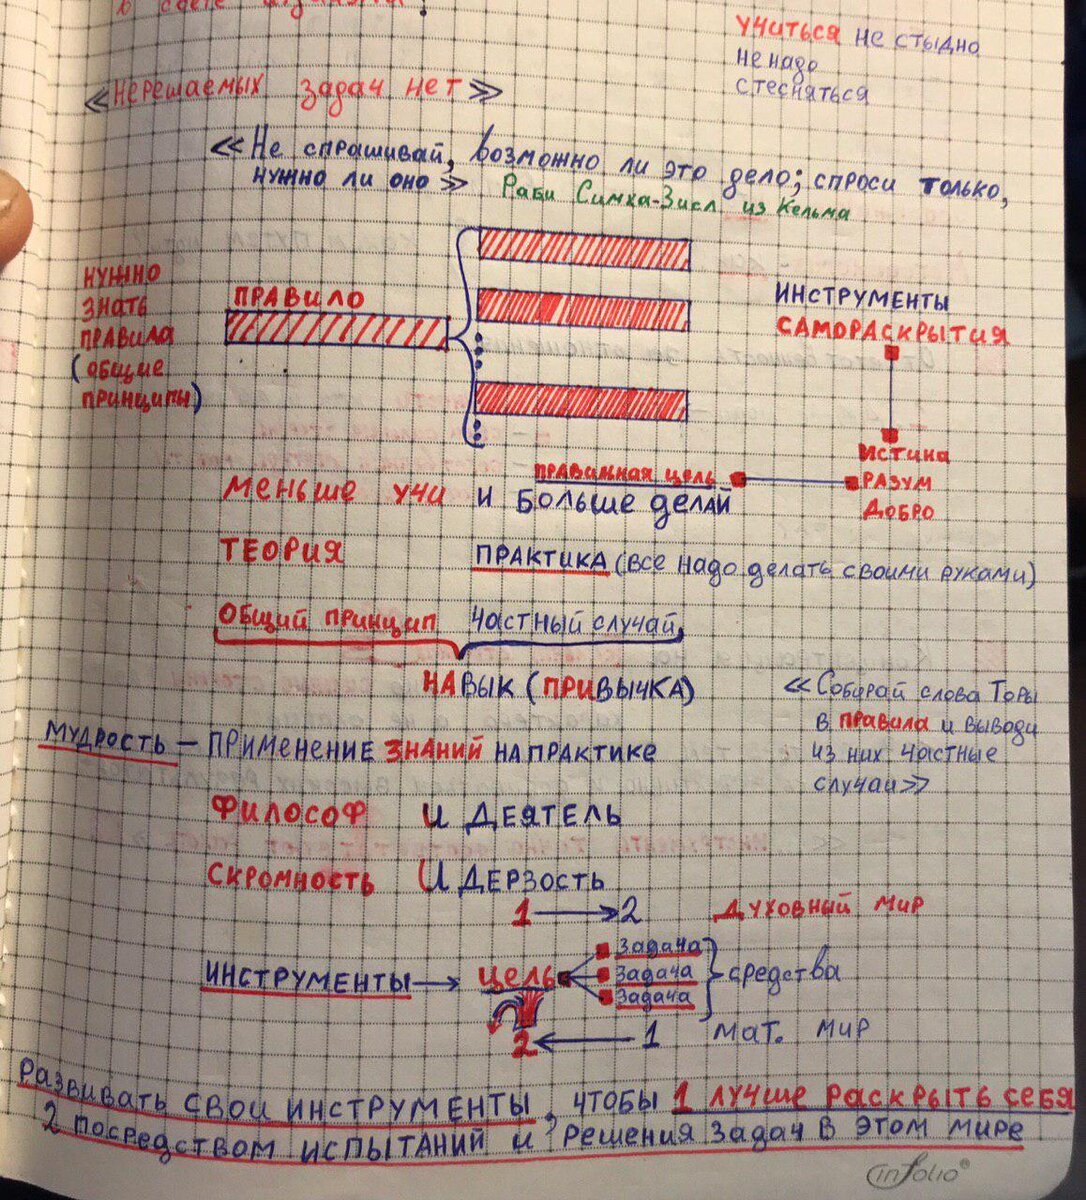 УЧИТЬСЯ НЕ СТЫДНО
НЕ НАДО
СТЕСНЯТЬСЯ
«Нерешаемых задач нет»
«Не спрашивай, возможно ли это дело; спроси только,
нужно ли оно» Раби Симха-Зисл из Кельма
НУЖНО
ЗНАТЬ
ПРАВИЛА
(ОБЩИЕ
ПРИНЦИПЫ)
ПРАВИЛО
ИНСТРУМЕНТЫ
САМОРАСКРЫТИЯ
ИСТИНА
ПРАВИЛЬНАЯ ЦЕЛЬ
РАЗУМ
ДОБРО
МЕНЬШЕ УЧИ И БОЛЬШЕ ДЕЛАЙ
ТЕОРИЯ ПРАКТИКА (ВСЕ НАДО ДЕЛАТЬ СВОИМИ РУКАМИ)
ОБЩИЙ ПРИНЦИП ЧАСТНЫЙ СЛУЧАЙ
НАВЫК (ПРИВЫЧКА)
«Собирай слова Торы
в правила и выводи
из них частные
случаи»
МУДРОСТЬ – ПРИМЕНЕНИЕ ЗНАНИЙ НА ПРАКТИКЕ
ФИЛОСОФ И ДЕЯТЕЛЬ
СКРОМНОСТЬ И ДЕРЗОСТЬ
1 → 2 ДУХОВНЫЙ МИР
ИНСТРУМЕНТЫ → ЦЕЛЬ
Задача
Задача
Задача
средства
2 ← 1 МАТ. МИР
РАЗВИВАТЬ СВОИ ИНСТРУМЕНТЫ, ЧТОБЫ 1 ЛУЧШЕ РАСКРЫТЬ СЕБЯ
2 ПОСРЕДСТВОМ ИСПЫТАНИЙ И РЕШЕНИЯ ЗАДАЧ В ЭТОМ МИРЕ
inFolio®